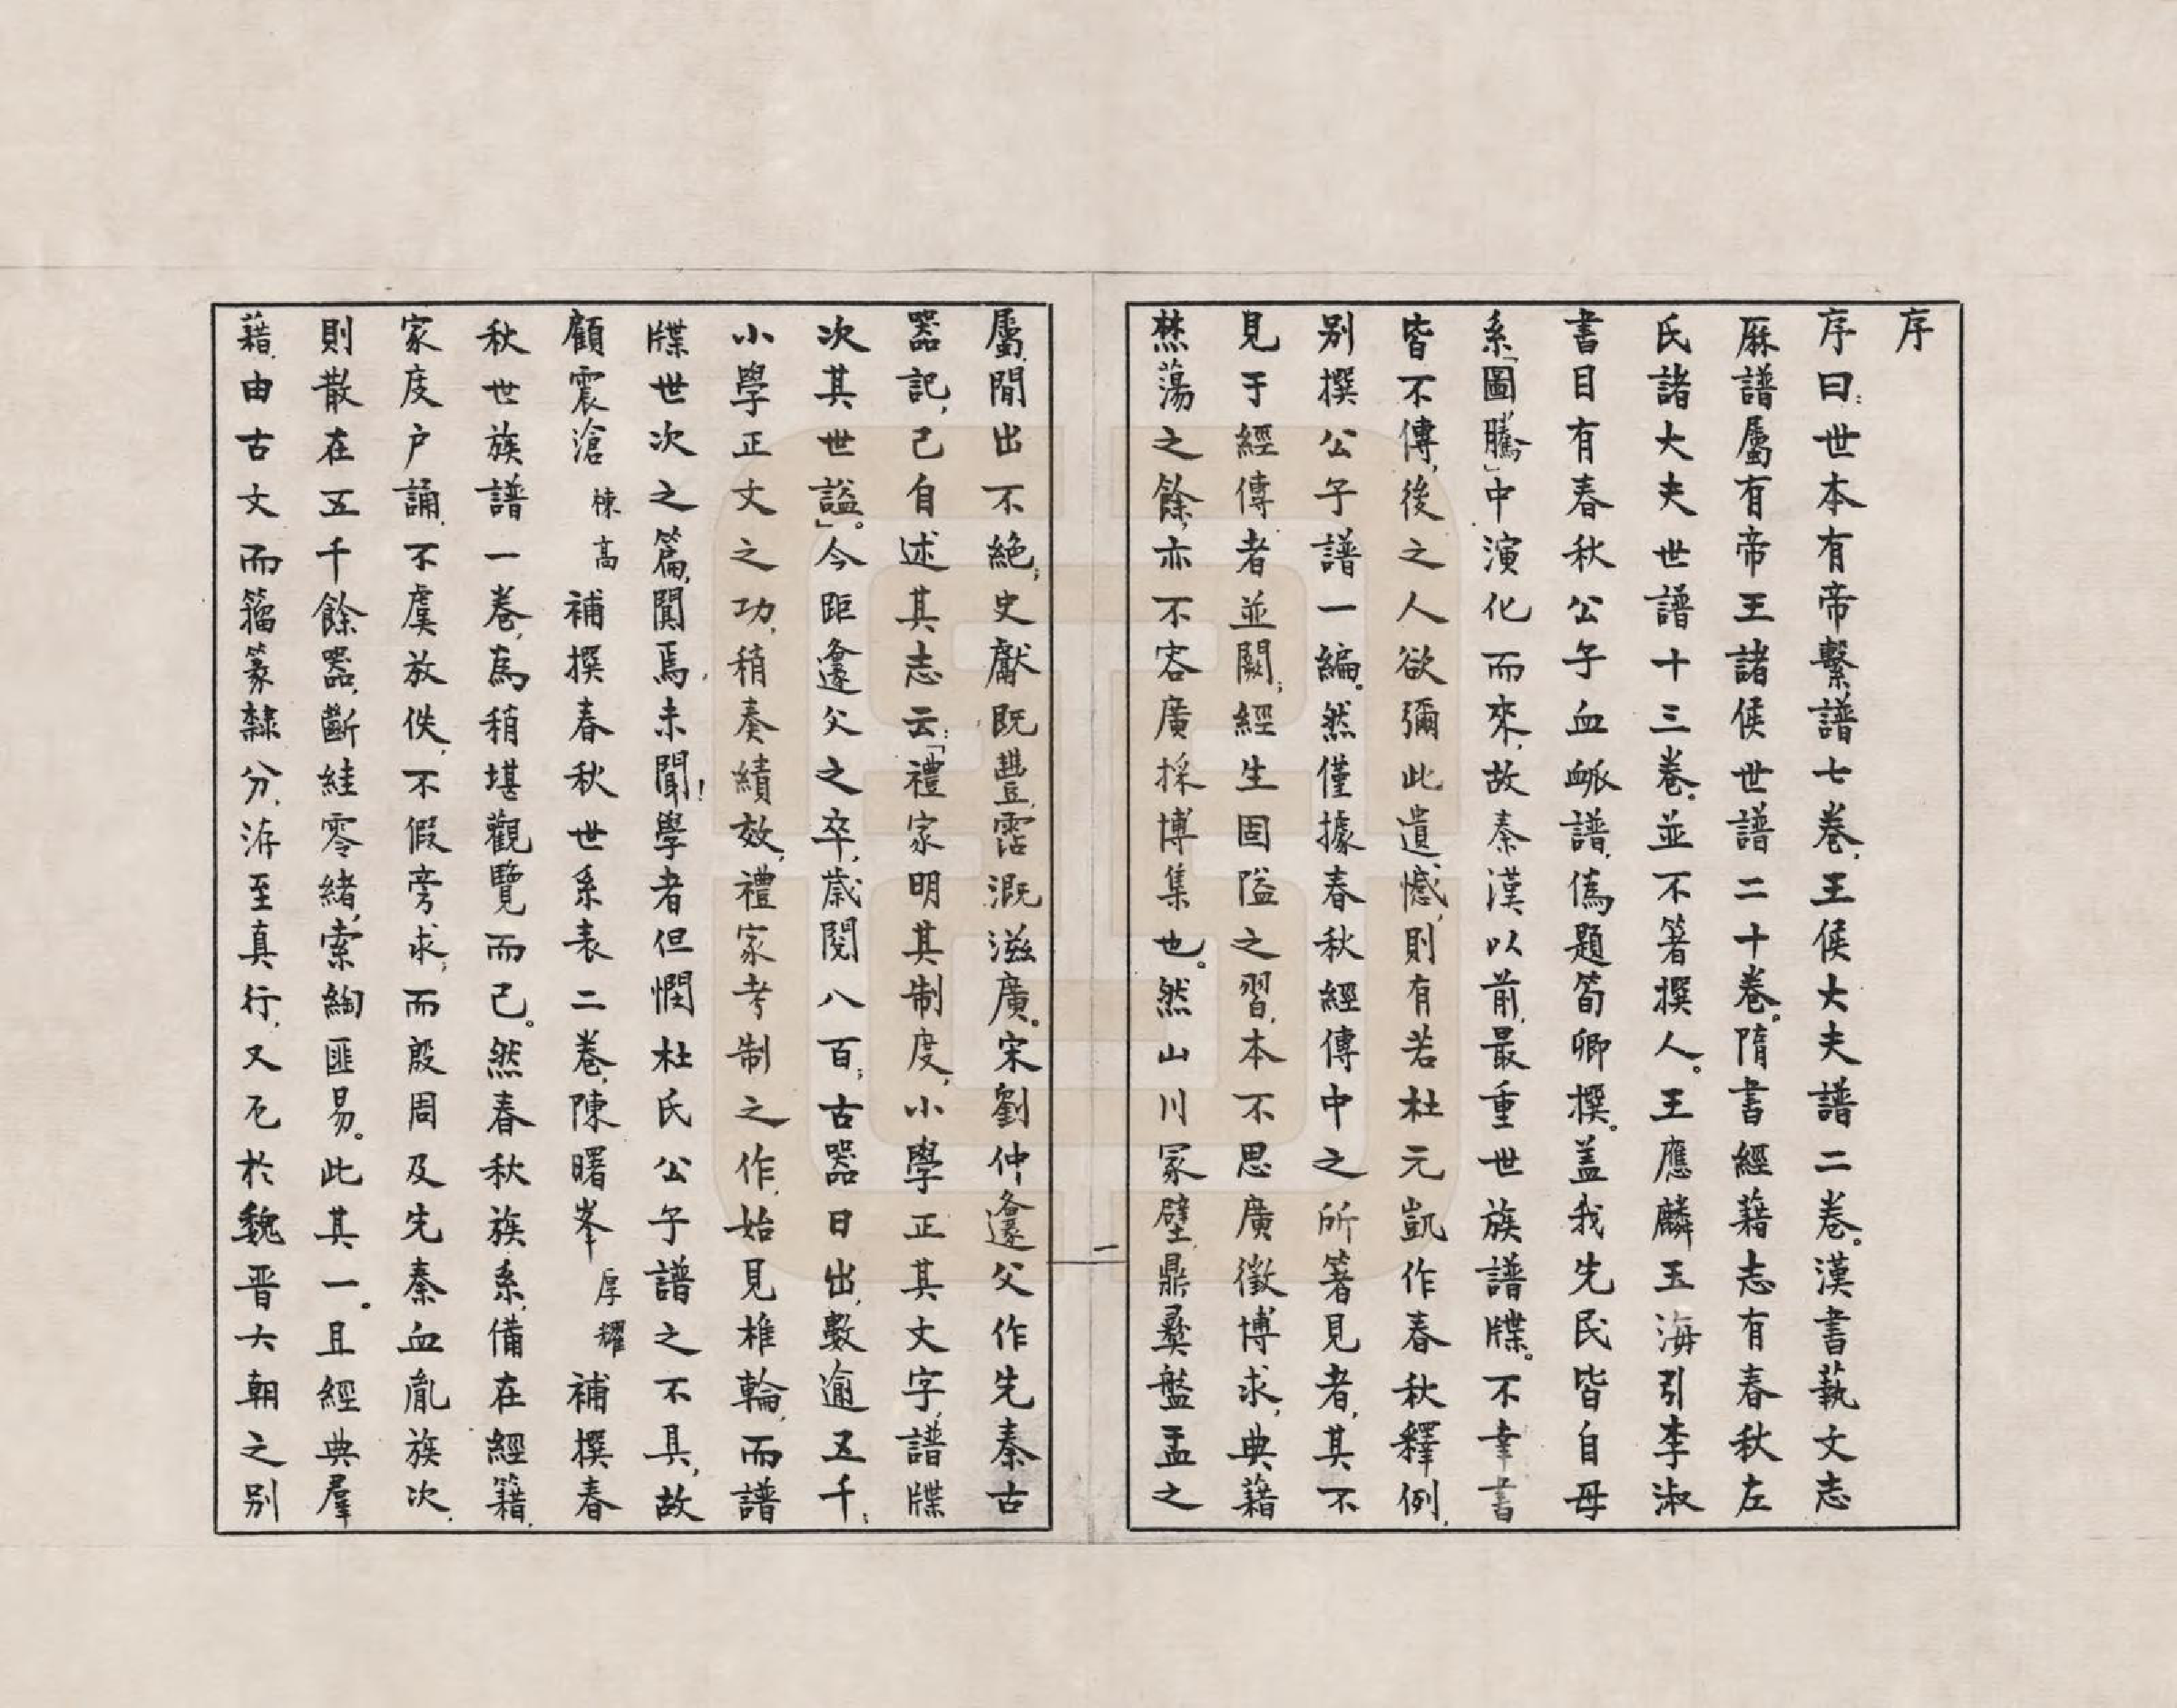 序
序曰：世本有帝繫譜七卷，王侯大夫譜二卷。漢書藝文志
厤譜屬有帝王諸侯世譜二十卷。隋書經籍志有春秋左
氏諸大夫世譜十三卷。並不箸撰人。王應麟玉海引李淑
書目有春秋公子血衇譜，僞題荀卿撰。盖我先民皆自母
系「圖騰」中演化而來，故秦漢以前，最重世族譜牒。不幸書
皆不傳，後之人欲彌此遺憾，則有若杜元凱作春秋釋例，
别撰公子譜一編。然僅據春秋經傳中之所箸見者，其不
見于經傳者並闕；經生固隘之習，本不思廣徵博求，典籍
焚蕩之餘，亦不容廣採博集也。然山川冢壁，鼎彝盤盂之
一
屬，閒出不絶；史獻既豐，霑溉滋廣。宋劉仲邍父作先秦古
器記，己自述其志云：「禮家明其制度，小學正其文字，譜牒
次其世謚」。今距邍父之卒，歲閱八百；古器日出，數逾五千；
小學正文之功，稍奏績效，禮家考制之作，始見椎輪，而譜
牒世次之篇，闃焉，未聞！學者但憫杜氏公子譜之不具，故
顧震滄棟高補撰春秋世系表二卷，陳曙峯厚耀補撰春
秋世族譜一卷，為稍堪觀覽而己。然春秋族系，備在經籍，
家庋户誦，不虞放佚，不假旁求，而殷周及先秦血胤族次，
則散在五千餘器，斷絓零緒，索綯匪易。此其一。且經典羣
藉，由古文而籀篆隸分，洊至真行，又厄於魏晋六朝之别